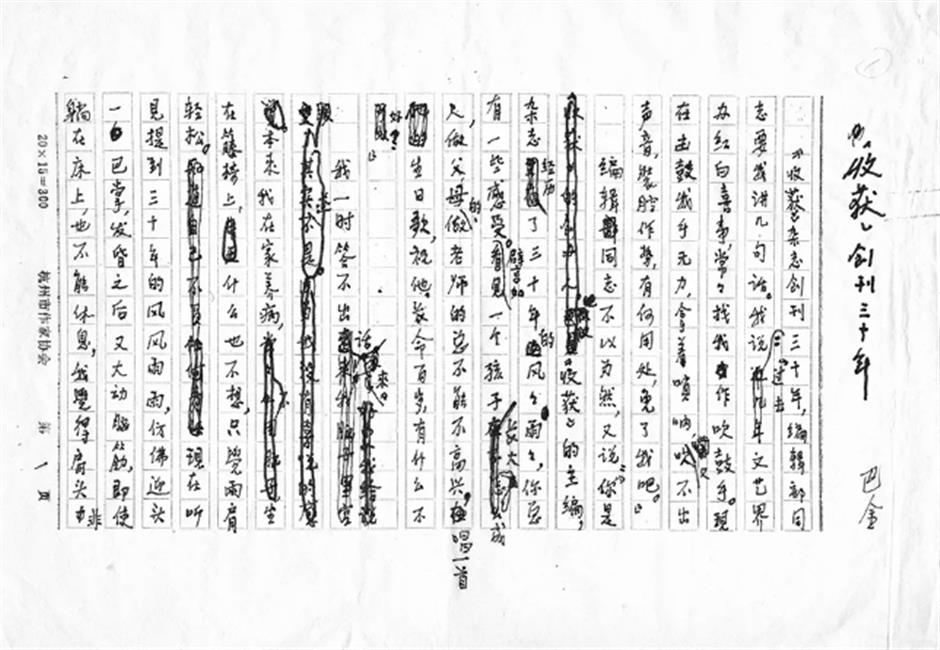 《收获》创刊三十年
巴金
《收获》杂志创刊三十年，编辑部同
志要我讲几句话。我说：“过去文艺界
办红白喜事，常常找我作吹鼓手。现
在击鼓我手无力，拿着唢呐又吹不出
声音，装腔作势，有何用处，免了我吧。”
编辑同志不以为然，又说：“你是
《收获》的主编，
杂志经历了三十年的风风雨雨，你总
有一些感受。譬如看见一个孩子长大成
人，做父母的、做老师的总不能不高兴。唱一首
生日歌，祝他长命百岁，有什么不
好？”
我一时答不出话来。
本来我在家养病，坐
在藤椅上，什么也不想，只觉两肩
轻松。现在听
见提到三十年的风风雨雨，仿佛迎头
一巴掌，发昏之后又大动脑筋，即使
躺在床上，也不能休息，我觉得肩头
20×15=300
杭州市作家协会
第 1 页